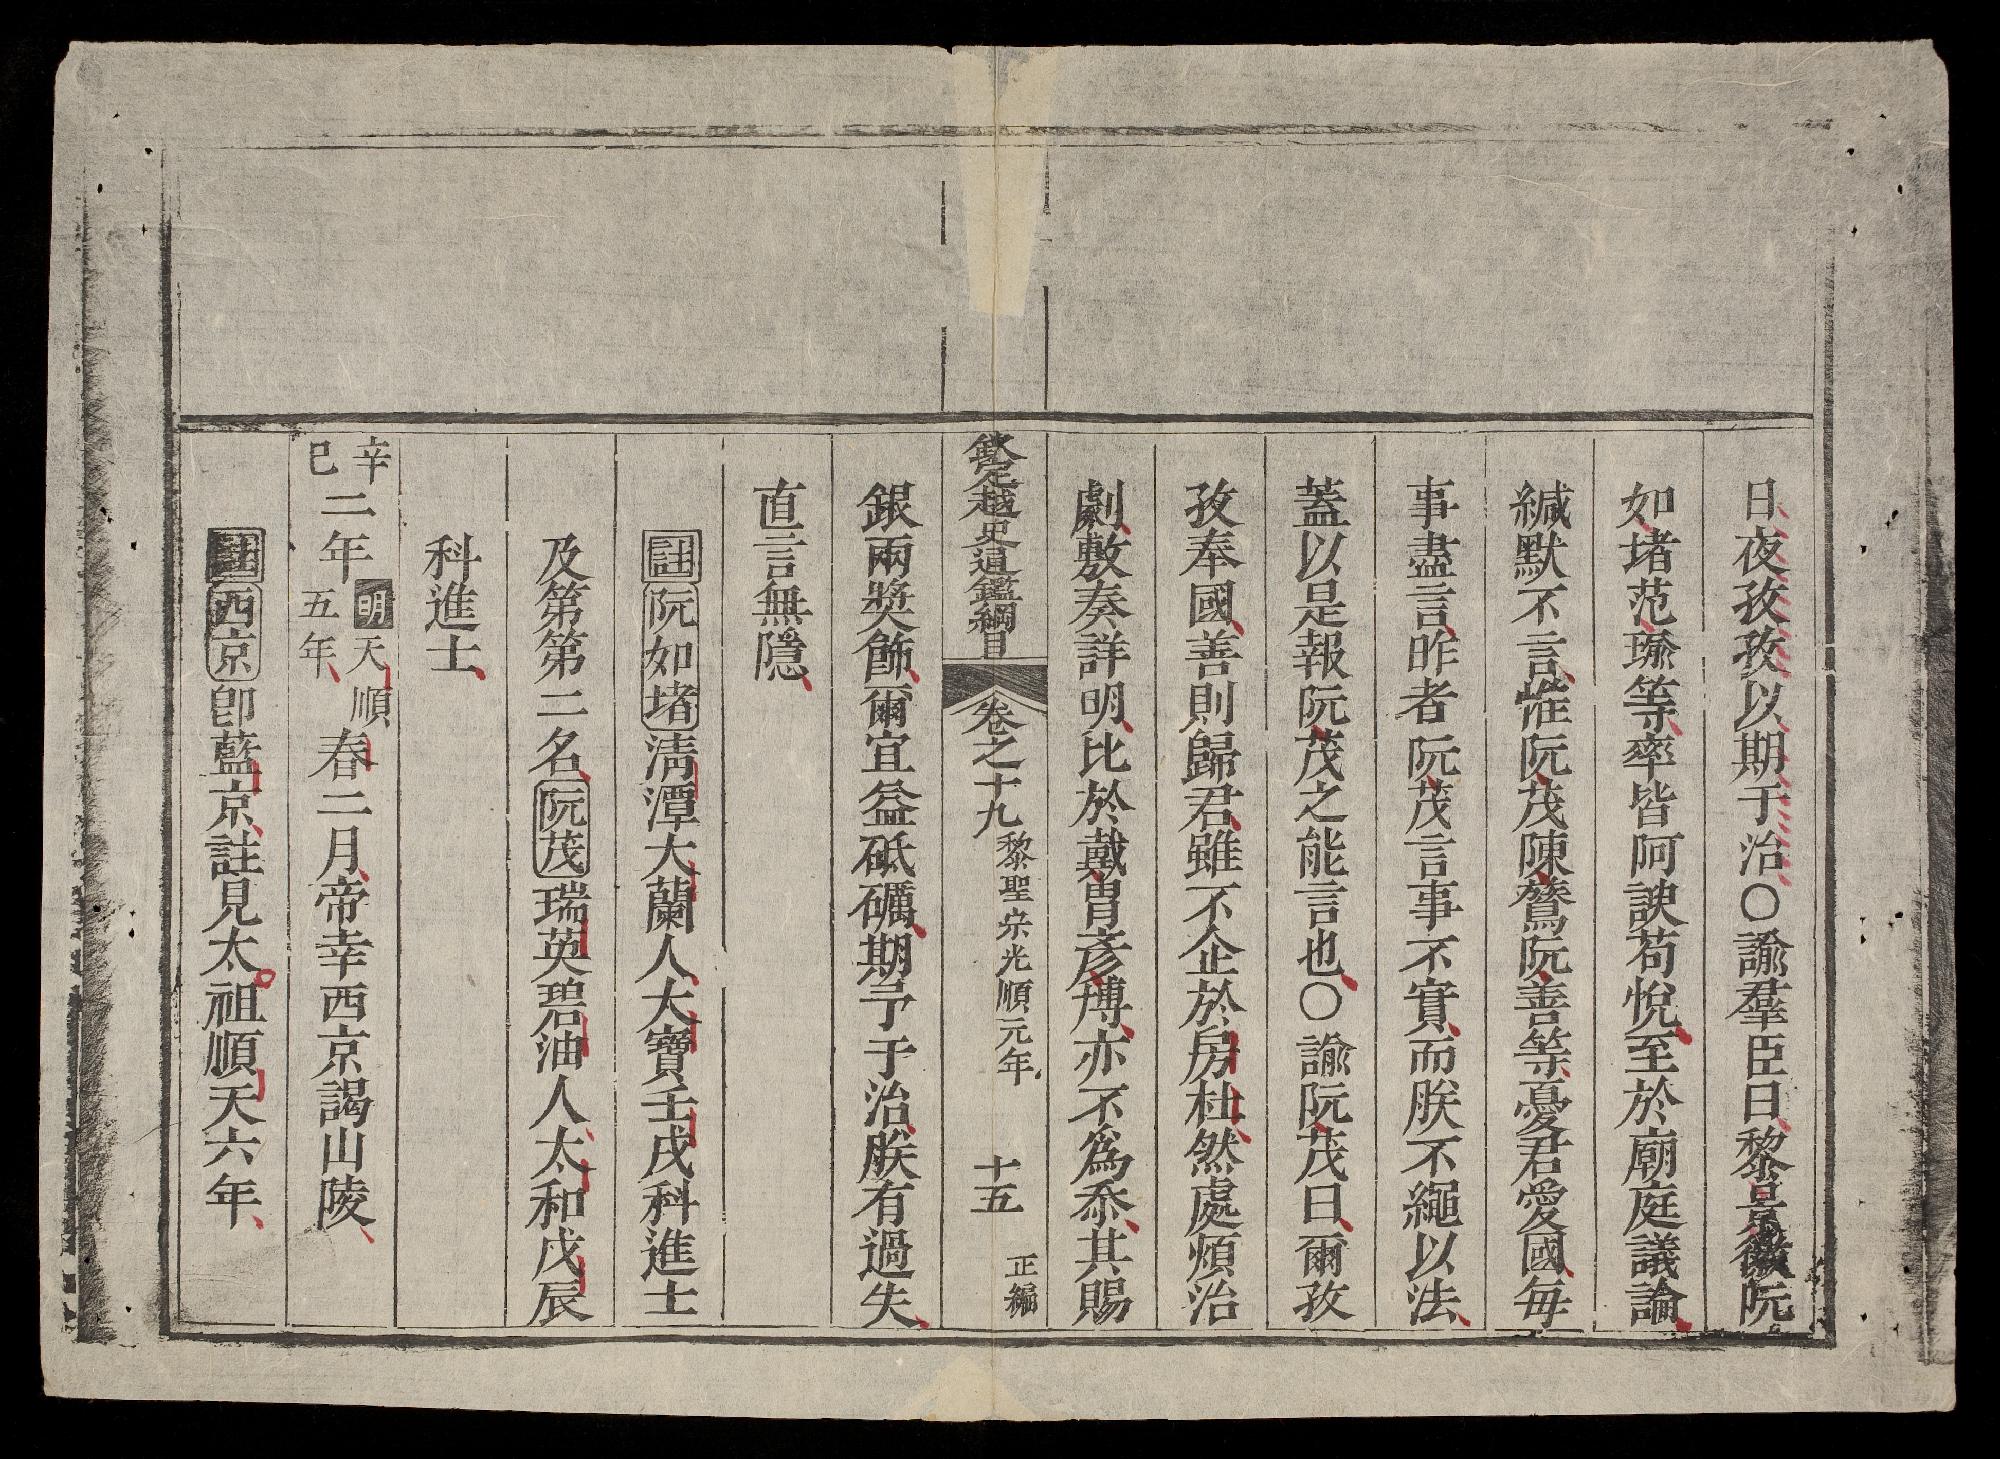 日夜孜孜以期于治○諭羣臣曰黎景徽阮
如堵范瑜等率皆阿諛苟悅至於廟庭議論
緘默不言惟阮茂陳鷟阮善等憂君愛國毎
事盡言昨者阮茂言事不實而朕不繩以法
蓋以是報阮茂之能言也○諭阮茂曰爾孜
孜奉國善則歸君雖不企於房杜然處煩治
劇敷奏詳明比於戴胄彥博亦不爲忝其賜
欽定越史通鑑綱目 卷之十九 黎聖宗光順元年 十五 正編
銀兩奬飭爾宜益砥礪期予于治朕有過失
直言無隱
註阮如堵淸潭大蘭人大寶壬戌科進士
及第第二名阮茂瑞英碧油人太和戊辰
科進士
辛巳二年明天順五年春二月帝幸西京謁山陵
註西京卽藍京註見太祖順天六年